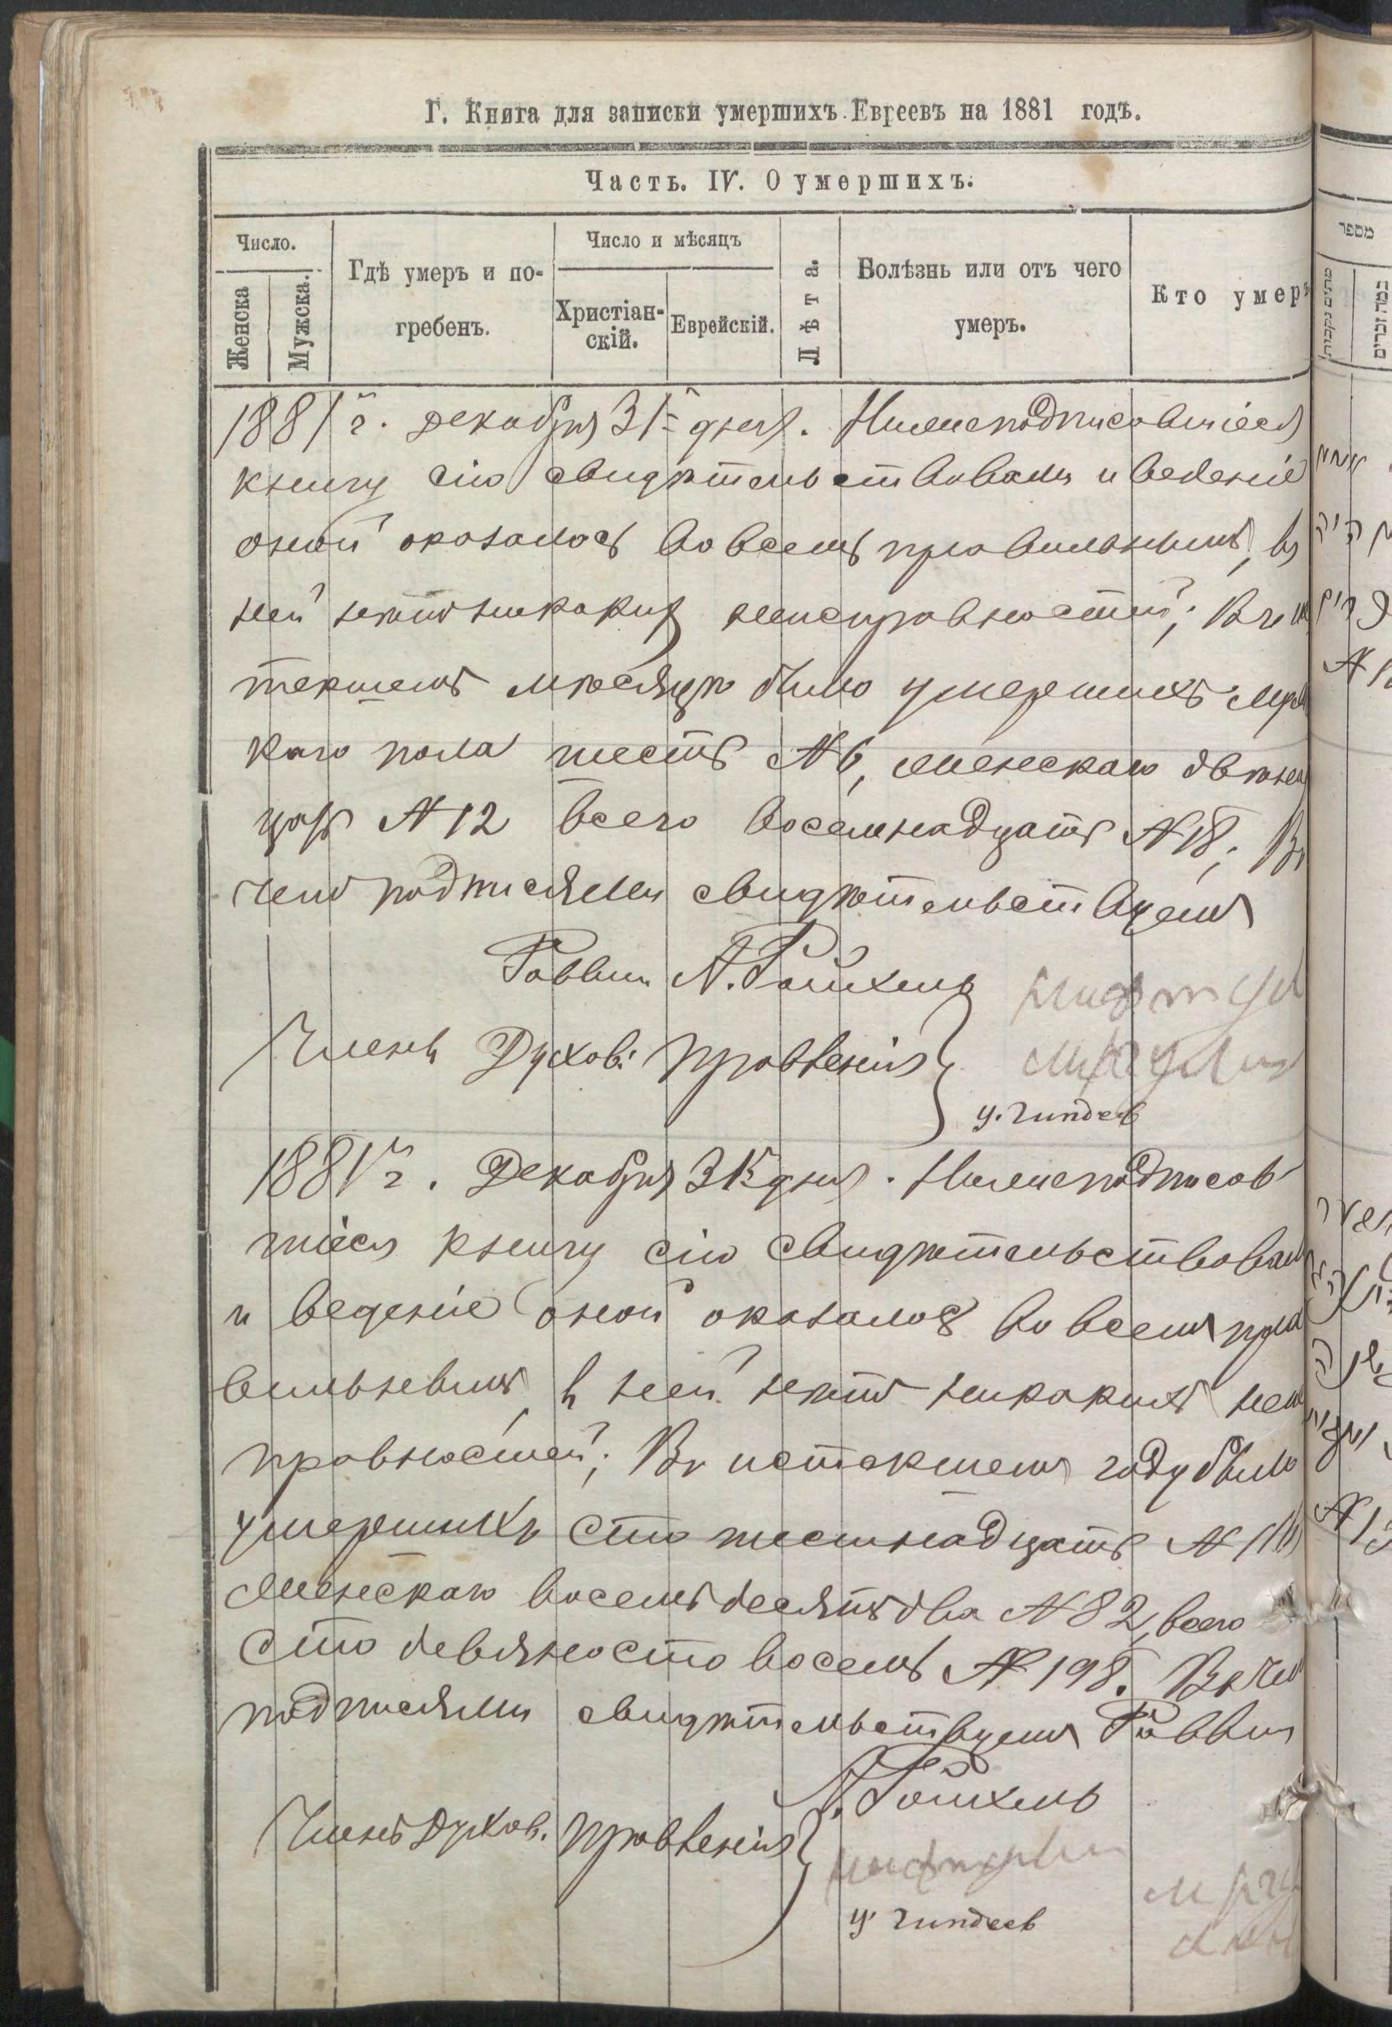 Г. Книга для записки умершихъ Евреевъ на 1881 годъ.
Часть. IV. О умершихъ.
Число.
Женска
Мужска.
Гдѣ умеръ и по-
гребенъ.
Число и мѣсяцъ
Христіан-
скій.
Еврейскій.
Лѣта.
Болѣзнь или отъ чего
умеръ.
Кто умеръ
מספר
מתים נקבות
כמה זכרים
1881 г. декабря 31 дня. Нижеподписавшіеся
книгу сію свидѣтельствовали и веденіе
оной оказалось во всемъ правильнымъ, въ
ней нѣтъ никакихъ неисправностей; В
текшемъ мѣсяцѣ было умершихъ муж
каго пола шесть № 6, женскаго двѣнад
цать № 12 всего восемнадцать № 18; Въ
чемъ подписями свидѣтельствуемъ
Раввин А. Райхель
Члены Духов: Правленія
У. Гиндев
1881 г. Декабря 31 дня. Нижеподписав
шіеся книгу сію свидѣтельствовали
и веденіе оной оказалось во всемъ пра
вильнымъ, в ней нѣтъ никакихъ неис
правностей; Въ истекшемъ году было
умершихъ сто шестнадцать № 116
женскаго восемьдесятъ два № 82, всего
сто девяносто восемь № 198. Въ чем
подписями свидѣтельствуемъ Раввин
А. Райхель
Члены Духов. Правленія
У. Гиндев